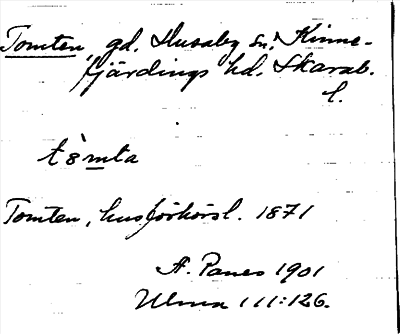 Tomten, gd. Husaby sn, Kinne-
fjärdings hd. Skarab.
l.
Tomten, husförhörsl. 1871
A. Paues 1901
111:126.